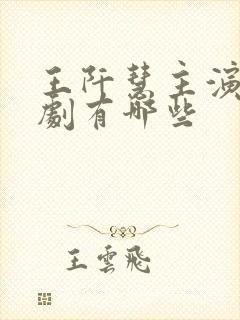 王阡慧主演
劇有哪些
王雲飛